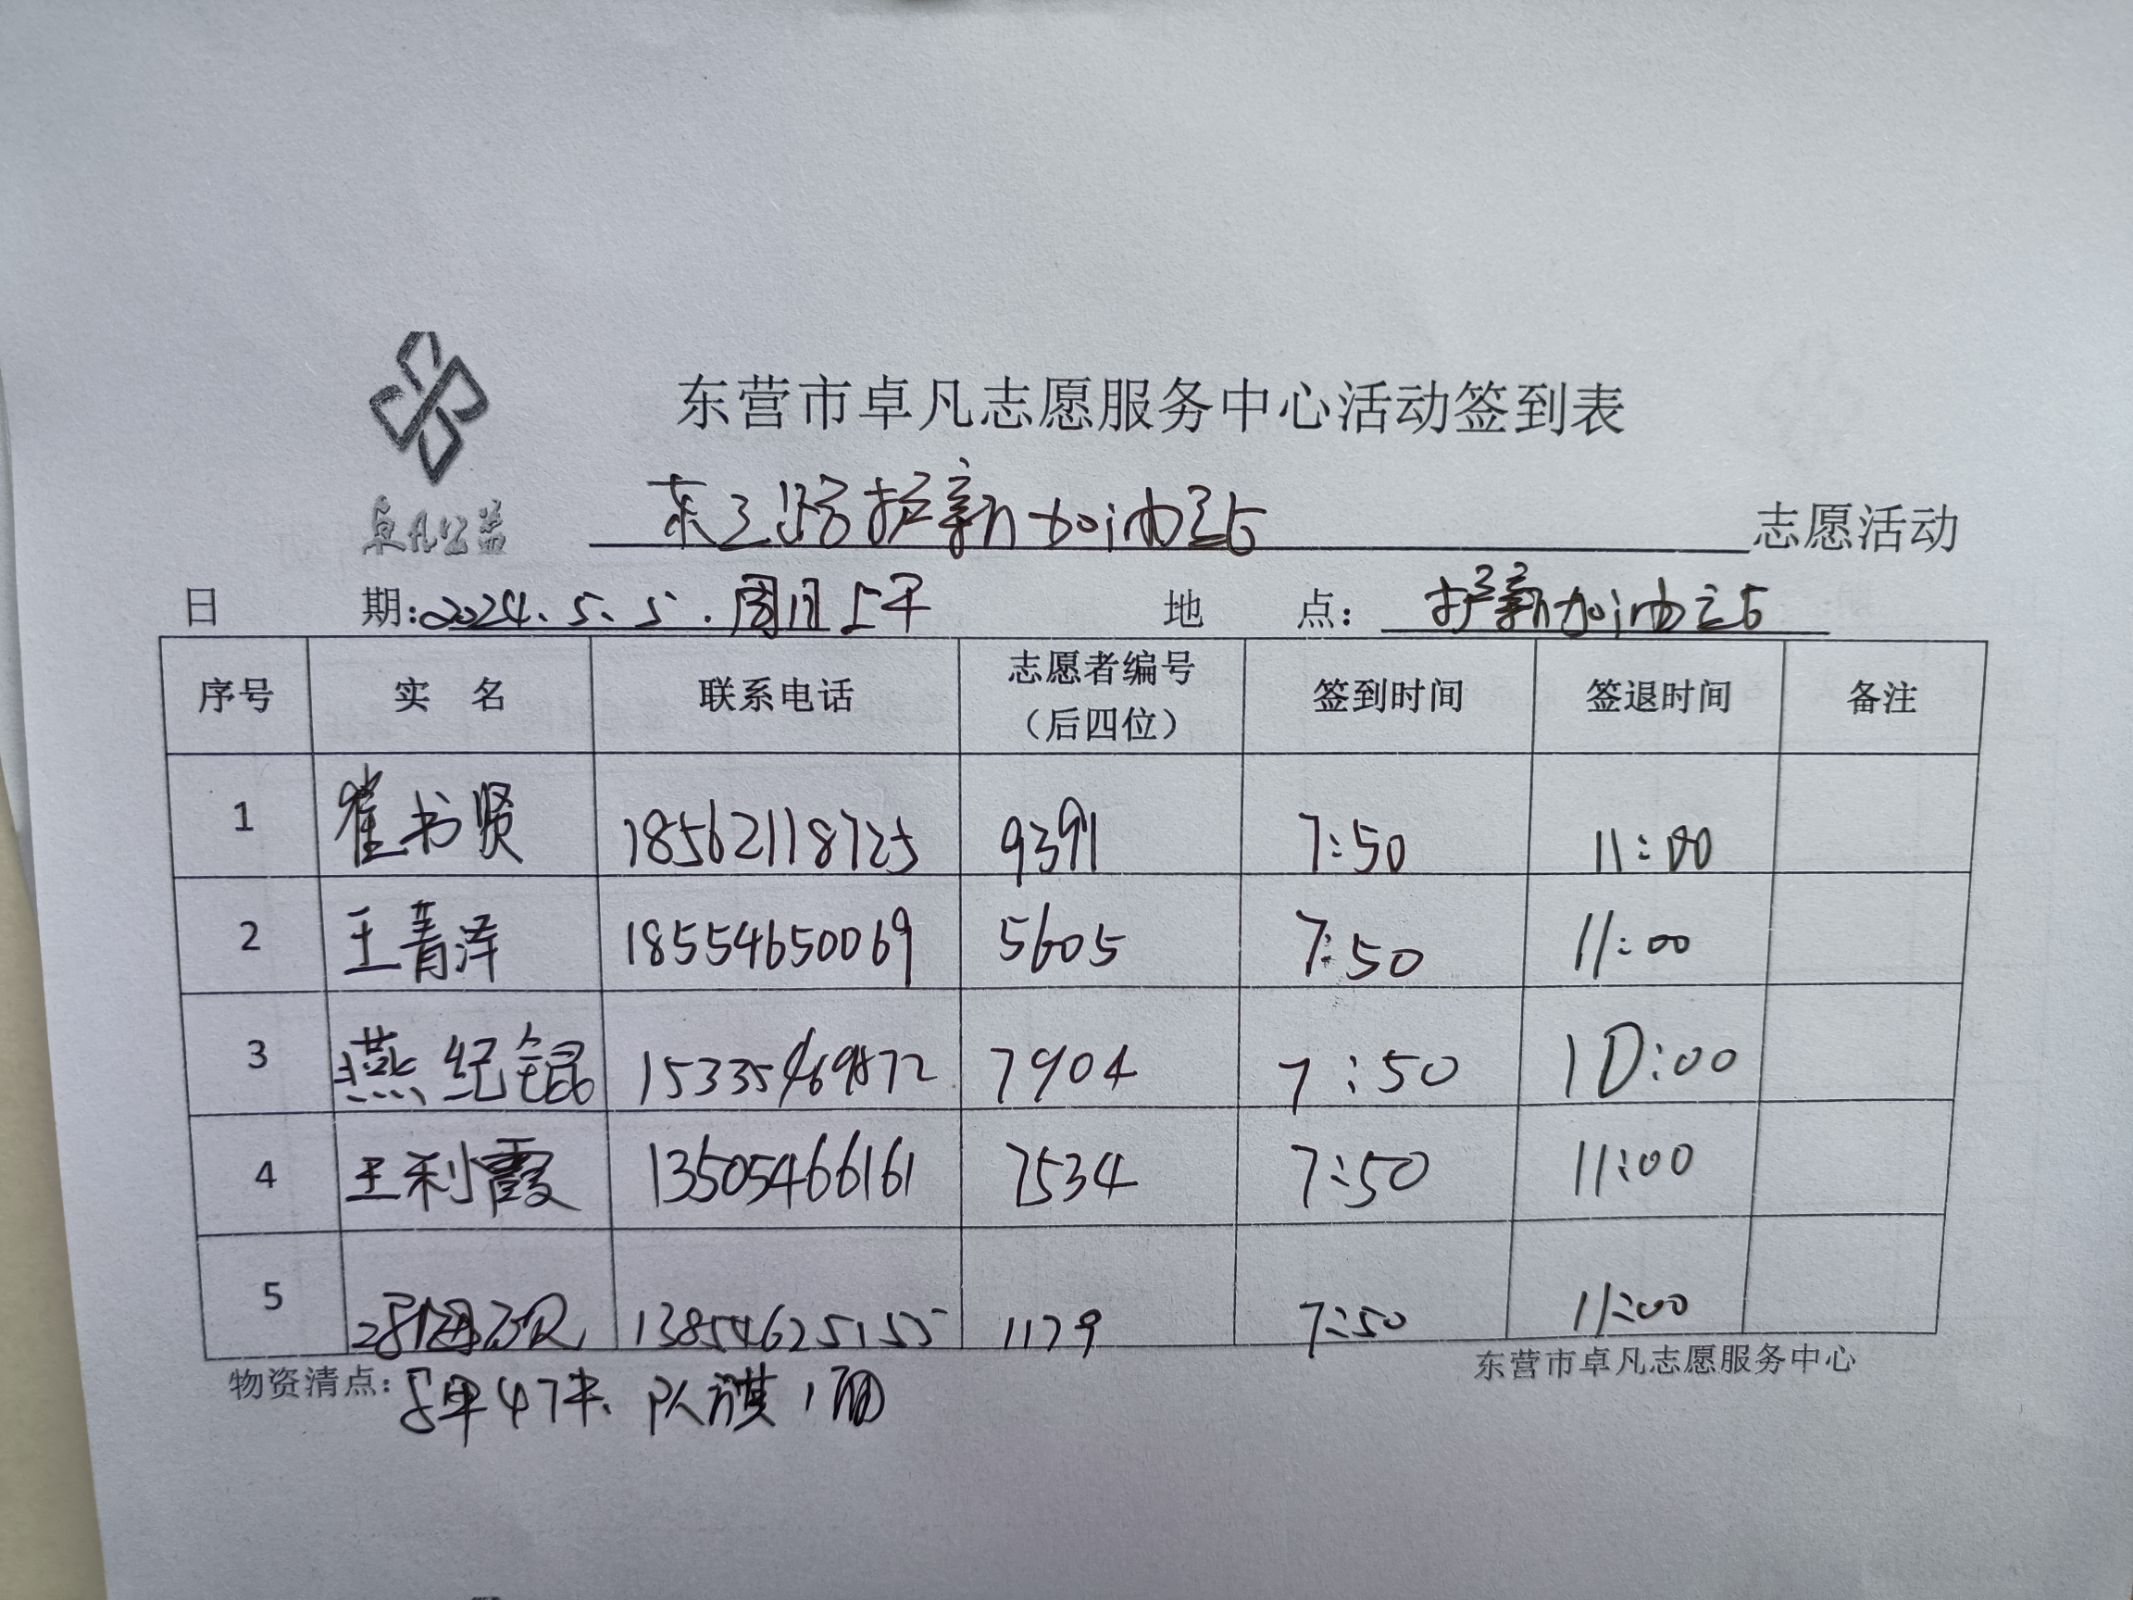 东营市卓凡志愿服务中心活动签到表
卓凡公益
东三路护新加油站 志愿活动
日 期:2024.5.5.周日上午 地 点: 护新加油站
序号 实 名 联系电话 志愿者编号（后四位） 签到时间 签退时间 备注
1 崔书贤 18562118725 9391 7:50 11:00
2 王青泽 18554650069 5605 7:50 11:00
3 燕纪锟 15335469872 7904 7:50 10:00
4 王利霞 13505466161 7534 7:50 11:00
5 13854625155 1179 7:50 11:00
物资清点: 队旗1面
东营市卓凡志愿服务中心